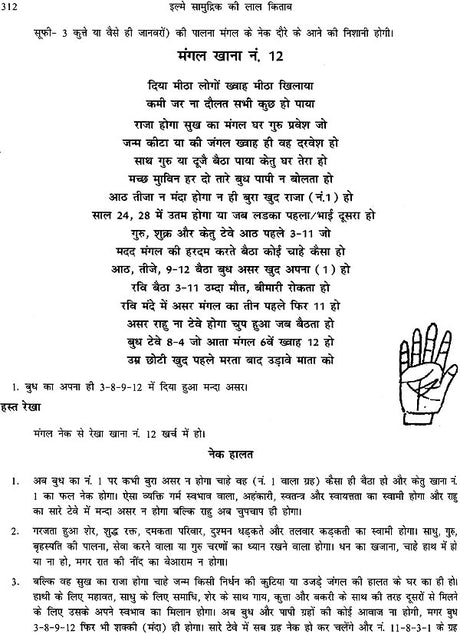 312
इल्मे सामुद्रिक की लाल किताब
सूफी- 3 कुत्ते या वैसे ही जानवरों) की पालना मंगल के नेक दौरे के आने की निशानी होगी।
मंगल खाना नं. 12
दिया मीठा लोगों ख्वाह मीठा खिलाया
कमी जर ना दौलत सभी कुछ हो पाया
राजा होगा सुख का मंगल घर गुरु प्रवेश जो
जन्म कीटा या की जंगल ख्वाह ही वह दरवेश हो
साथ गुरु या दूजै बैठा पाया केतु घर तेरा हो
मच्छ मुाविन हर दो तारे बुध पापी न बोलता हो
आठ तीजा न मंदा होगा न ही बुरा खुद राजा (नं.1) हो
साल 24, 28 में उतम होगा या जब लडका पहला/भाई दूसरा हो
गुरु, शुक्र और केतु टेवे आठ पहले 3-11 जो
मदद मंगल की हरदम करते बैठा कोई चाहे कैसा हो
आठ, तीजे, 9-12 बैठा बुध असर खुद अपना (1) हो
रवि बैठा 3-11 उम्दा मौत, बीमारी रोकता हो
रवि मंदे में असर मंगल का तीन पहले फिर 11 हो
असर राहु ना टेवे होगा चुप हुआ जब बैठता हो
बुध टेवे 8-4 जो आता मंगल 6वें ख्वाह 12 हो
उम्र छोटी खुद पहले मरता बाद उड़ावे माता को
1. बुध का अपना ही 3-8-9-12 में दिया हुआ मन्दा असर।
हस्त रेखा
मंगल नेक से रेखा खाना नं. 12 खर्च में हो।
नेक हालत
1. अब बुध का नं. 1 पर कभी बुरा असर न होगा चाहे वह (नं. 1 वाला ग्रह) कैसा ही बैठा हो और केतु खाना नं.
1 का फल नेक होगा। ऐसा व्यक्ति गर्म स्वभाव वाला, अहंकारी, स्वतन्त्र और स्वायत्तता का स्वामी होगा और राहु
का सारे टेवे में मन्दा असर न होगा बल्कि राहु अब चुपचाप ही होगा।
2. गरजता हुआ शेर, शुद्ध रक्त, दमकता परिवार, दुश्मन धड़कते और तलवार कड़कती का स्वामी होगा। साधु, गुरु,
बृहस्पति की पालना, सेवा करने वाला या गुरु चरणों का ध्यान रखने वाला होगा। धन का खजाना, चाहे हाथ में हो
या ना हो, मगर रात की नींद का बेआराम न होगा।
3. बल्कि वह सुख का राजा होगा चाहे जन्म किसी निर्धन की कुटिया या उजड़े जंगल की हालत के घर का ही हो।
हाथी के लिए महावत, साधु के लिए समाधि, शेर के साथ गाय, कुत्ता और बकरी के साथ की तरह दूसरों से मिलने
के लिए उसके अपने स्वभाव का मिलान होगा। अब बुध और पापी ग्रहों की कोई आवाज ना होगी, मगर बुध
3-8-9-12 फिर भी शक्की (मंदा) ही होगा। सारे टेवे में सब ग्रह नेक हो कर चलेंगे और नं. 11-8-3-1 के ग्रह